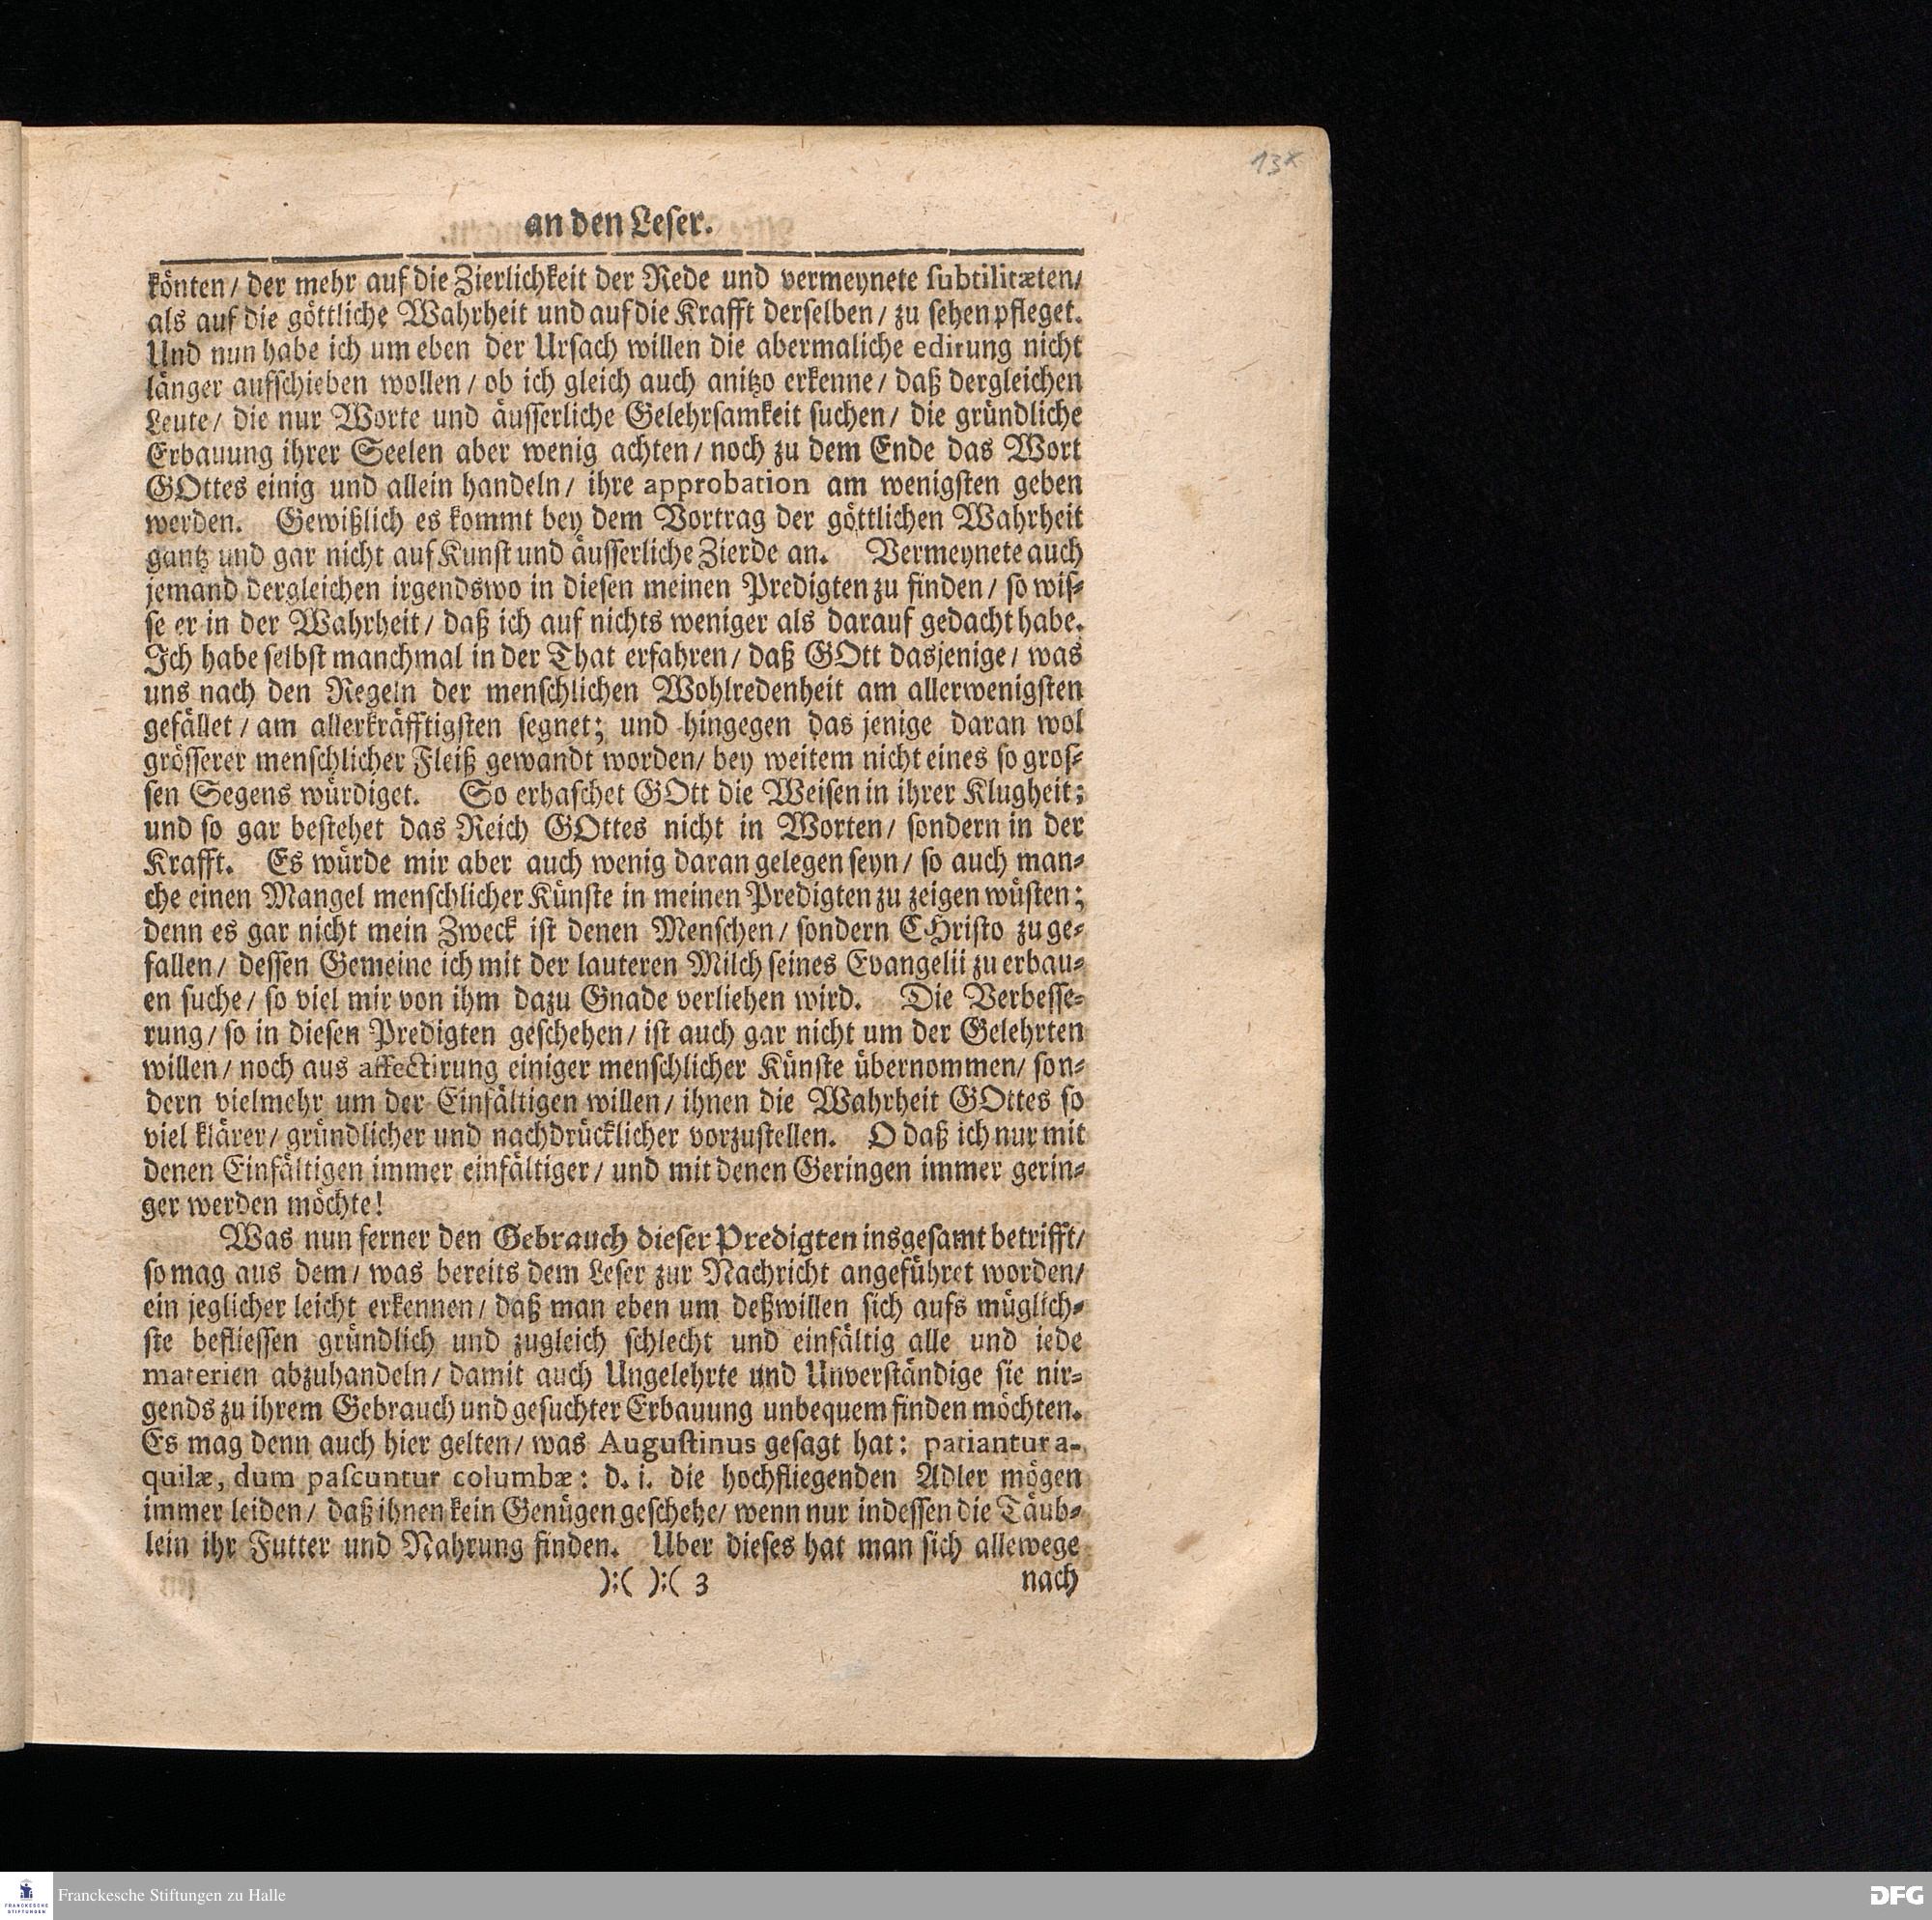 13x
an den Leser.
könten/ der mehr auf die Zierlichkeit der Rede und vermeynete subtilitæten/
als auf die göttliche Wahrheit und auf die Krafft derselben/ zu sehen pfleget.
Und nun habe ich um eben der Ursach willen die abermaliche edirung nicht
länger aufschieben wollen/ ob ich gleich auch anitzo erkenne/ daß dergleichen
Leute/ die nur Worte und äusserliche Gelehrsamkeit suchen/ die gründliche
Erbauung ihrer Seelen aber wenig achten/ noch zu dem Ende das Wort
GOttes einig und allein handeln/ ihre approbation am wenigsten geben
werden. Gewißlich es kommt bey dem Vortrag der göttlichen Wahrheit
gantz und gar nicht auf Kunst und äusserliche Zierde an. Vermeynete auch
jemand dergleichen irgendswo in diesen meinen Predigten zu finden/ so wis-
se er in der Wahrheit/ daß ich auf nichts weniger als darauf gedacht habe.
Ich habe selbst manchmal in der That erfahren/ daß GOtt dasjenige/ was
uns nach den Regeln der menschlichen Wohlredenheit am allerwenigsten
gefället/ am allerkräfftigsten segnet; und hingegen das jenige daran wol
grösserer menschlicher Fleiß gewandt worden/ bey weitem nicht eines so gros-
sen Segens würdiget. So erhaschet GOtt die Weisen in ihrer Klugheit;
und so gar bestehet das Reich GOttes nicht in Worten/ sondern in der
Krafft. Es würde mir aber auch wenig daran gelegen seyn/ so auch man-
che einen Mangel menschlicher Künste in meinen Predigten zu zeigen wüsten;
denn es gar nicht mein Zweck ist denen Menschen/ sondern CHristo zu ge-
fallen/ dessen Gemeine ich mit der lauteren Milch seines Evangelii zu erbau-
en suche/ so viel mir von ihm dazu Gnade verliehen wird. Die Verbesse-
rung/ so in diesen Predigten geschehen/ ist auch gar nicht um der Gelehrten
willen/ noch aus affectirung einiger menschlicher Künste übernommen/ son-
dern vielmehr um der Einfältigen willen/ ihnen die Wahrheit GOttes so
viel klärer/ gründlicher und nachdrücklicher vorzustellen. O daß ich nur mit
denen Einfältigen immer einfältiger/ und mit denen Geringen immer gerin-
ger werden möchte!
Was nun ferner den Gebrauch dieser Predigten insgesamt betrifft/
so mag aus dem/ was bereits dem Leser zur Nachricht angeführet worden/
ein jeglicher leicht erkennen/ daß man eben um deßwillen sich aufs müglich-
ste befliessen gründlich und zugleich schlecht und einfältig alle und iede
materien abzuhandeln/ damit auch Ungelehrte und Unverständige sie nir-
gends zu ihrem Gebrauch und gesuchter Erbauung unbequem finden möchten.
Es mag denn auch hier gelten/ was Augustinus gesagt hat: patiantur a-
quilæ, dum pascuntur columbæ: d. i. die hochfliegenden Adler mögen
immer leiden/ daß ihnen kein Genügen geschehe/ wenn nur indessen die Täub-
lein ihr Futter und Nahrung finden. Uber dieses hat man sich allewege
):( ):( 3 nach
FRANCKESCHE STIFTUNGEN
Franckesche Stiftungen zu Halle
DFG